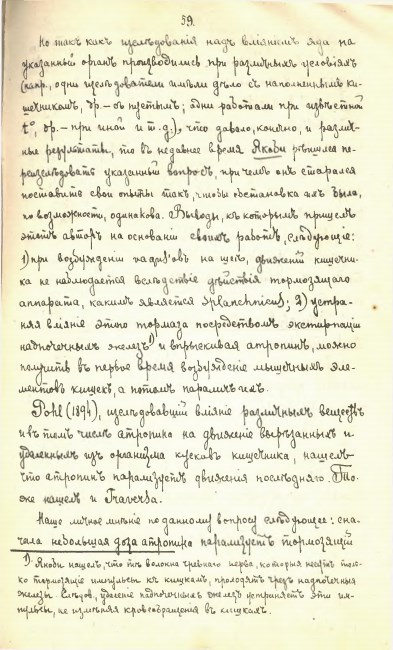 59.
Но такъ какъ изслѣдованія надъ вліяніемъ яда на
указанный органъ производились при различныхъ условіяхъ
(напр., одни изслѣдователи имѣли дѣло съ наполненнымъ ки-
шечникомъ, др.- съ пустымъ; одни работали при извѣстной
t°, др.- при иной и т.д.), что давало, конечно, и различ-
ные результаты, то въ недавнее время Якоби рѣшился пе-
реизслѣдовать указанный вопросъ, при чемъ онъ старался
поставить свои опыты такъ, чтобы обстановка ихъ была,
по возможности, одинакова. Выводы, къ которымъ пришелъ
этотъ авторъ на основаніи своихъ работъ, слѣдующіе:
1) при возбужденіи vagus'овъ на шеѣ, движеній кишечни-
ка не наблюдается вслѣдствіе дѣйствія тормозящаго
аппарата, какимъ является Splanchnicus; 2) устра-
няя вліяніе этого тормаза посредствомъ экстирпаціи
надпочечныхъ железъ¹) и впрыскивая атропинъ, можно
получить въ первое время возбужденіе мышечныхъ эле-
ментовъ кишекъ, а потомъ параличъ ихъ.
Pohl (1894), изслѣдовавшій вліяніе различныхъ веществъ
и въ томъ числѣ атропина на движеніе вырѣзанныхъ и
удаленныхъ изъ организма кусковъ кишечника, нашелъ
что атропинъ парализуетъ движенія послѣдняго. То-
же нашелъ и Traversa.
Наше личное мнѣніе по данному вопросу слѣдующее: сна-
чала небольшая доза атропина парализуетъ тормозящій
1) Якоби нашелъ, что тѣ волокна чревнаго нерва, которыя несутъ толь-
ко тормозящіе импульсы къ кишкамъ, проходятъ чрезъ надпочечныя
железы. Слѣдов., удаленіе надпочечныхъ железъ устраняетъ эти им-
пульсы, не измѣняя кровообращенія въ кишкахъ.